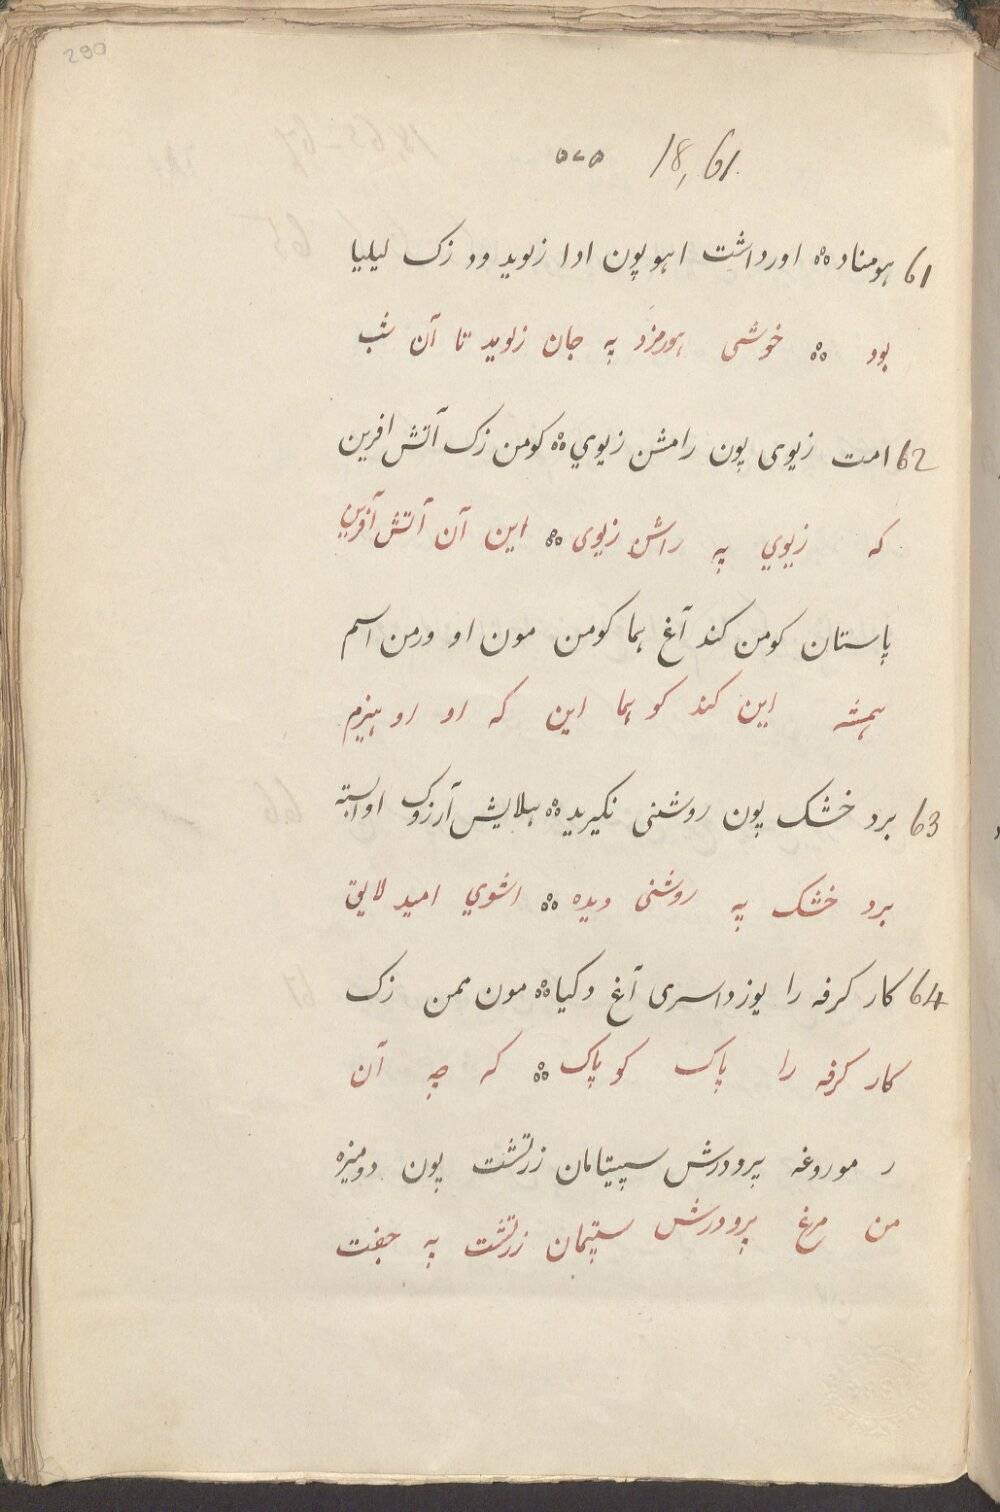 290
۵۷۵ 18, 61.
61 هومناد ܀ اورداشت اهو پون ادا زلوید ود زک لیلیا
بود ܀ خوشی هورمزد په جان زلوید تا آن شب
62 امت زیوی پون رامشن زیوي ܀ کومن زک آتش افرین
که زیوي په رامشن زیوی ܀ این آن آتش آفرین
پاستان کومن کند آغ هما کومن مون او ورمن اسم
همشه این کند کو هما این که او او هیزم
63 برد خشک پون روشنی نکیرید ܀ هلایش آرزوک اوابسته
برد خشک په روشنی دیده ܀ اشوي امید لایق
64 کار کرفه را یوزداسری آغ دکیا ܀ مون ممن زک
کار کرفه را پاک کو پاک ܀ که چه آن
ر موروغه پرورش سپیتامان زرتشت پون دومیزه
من مرغ پرورش سپتمان زرتشت په جفت